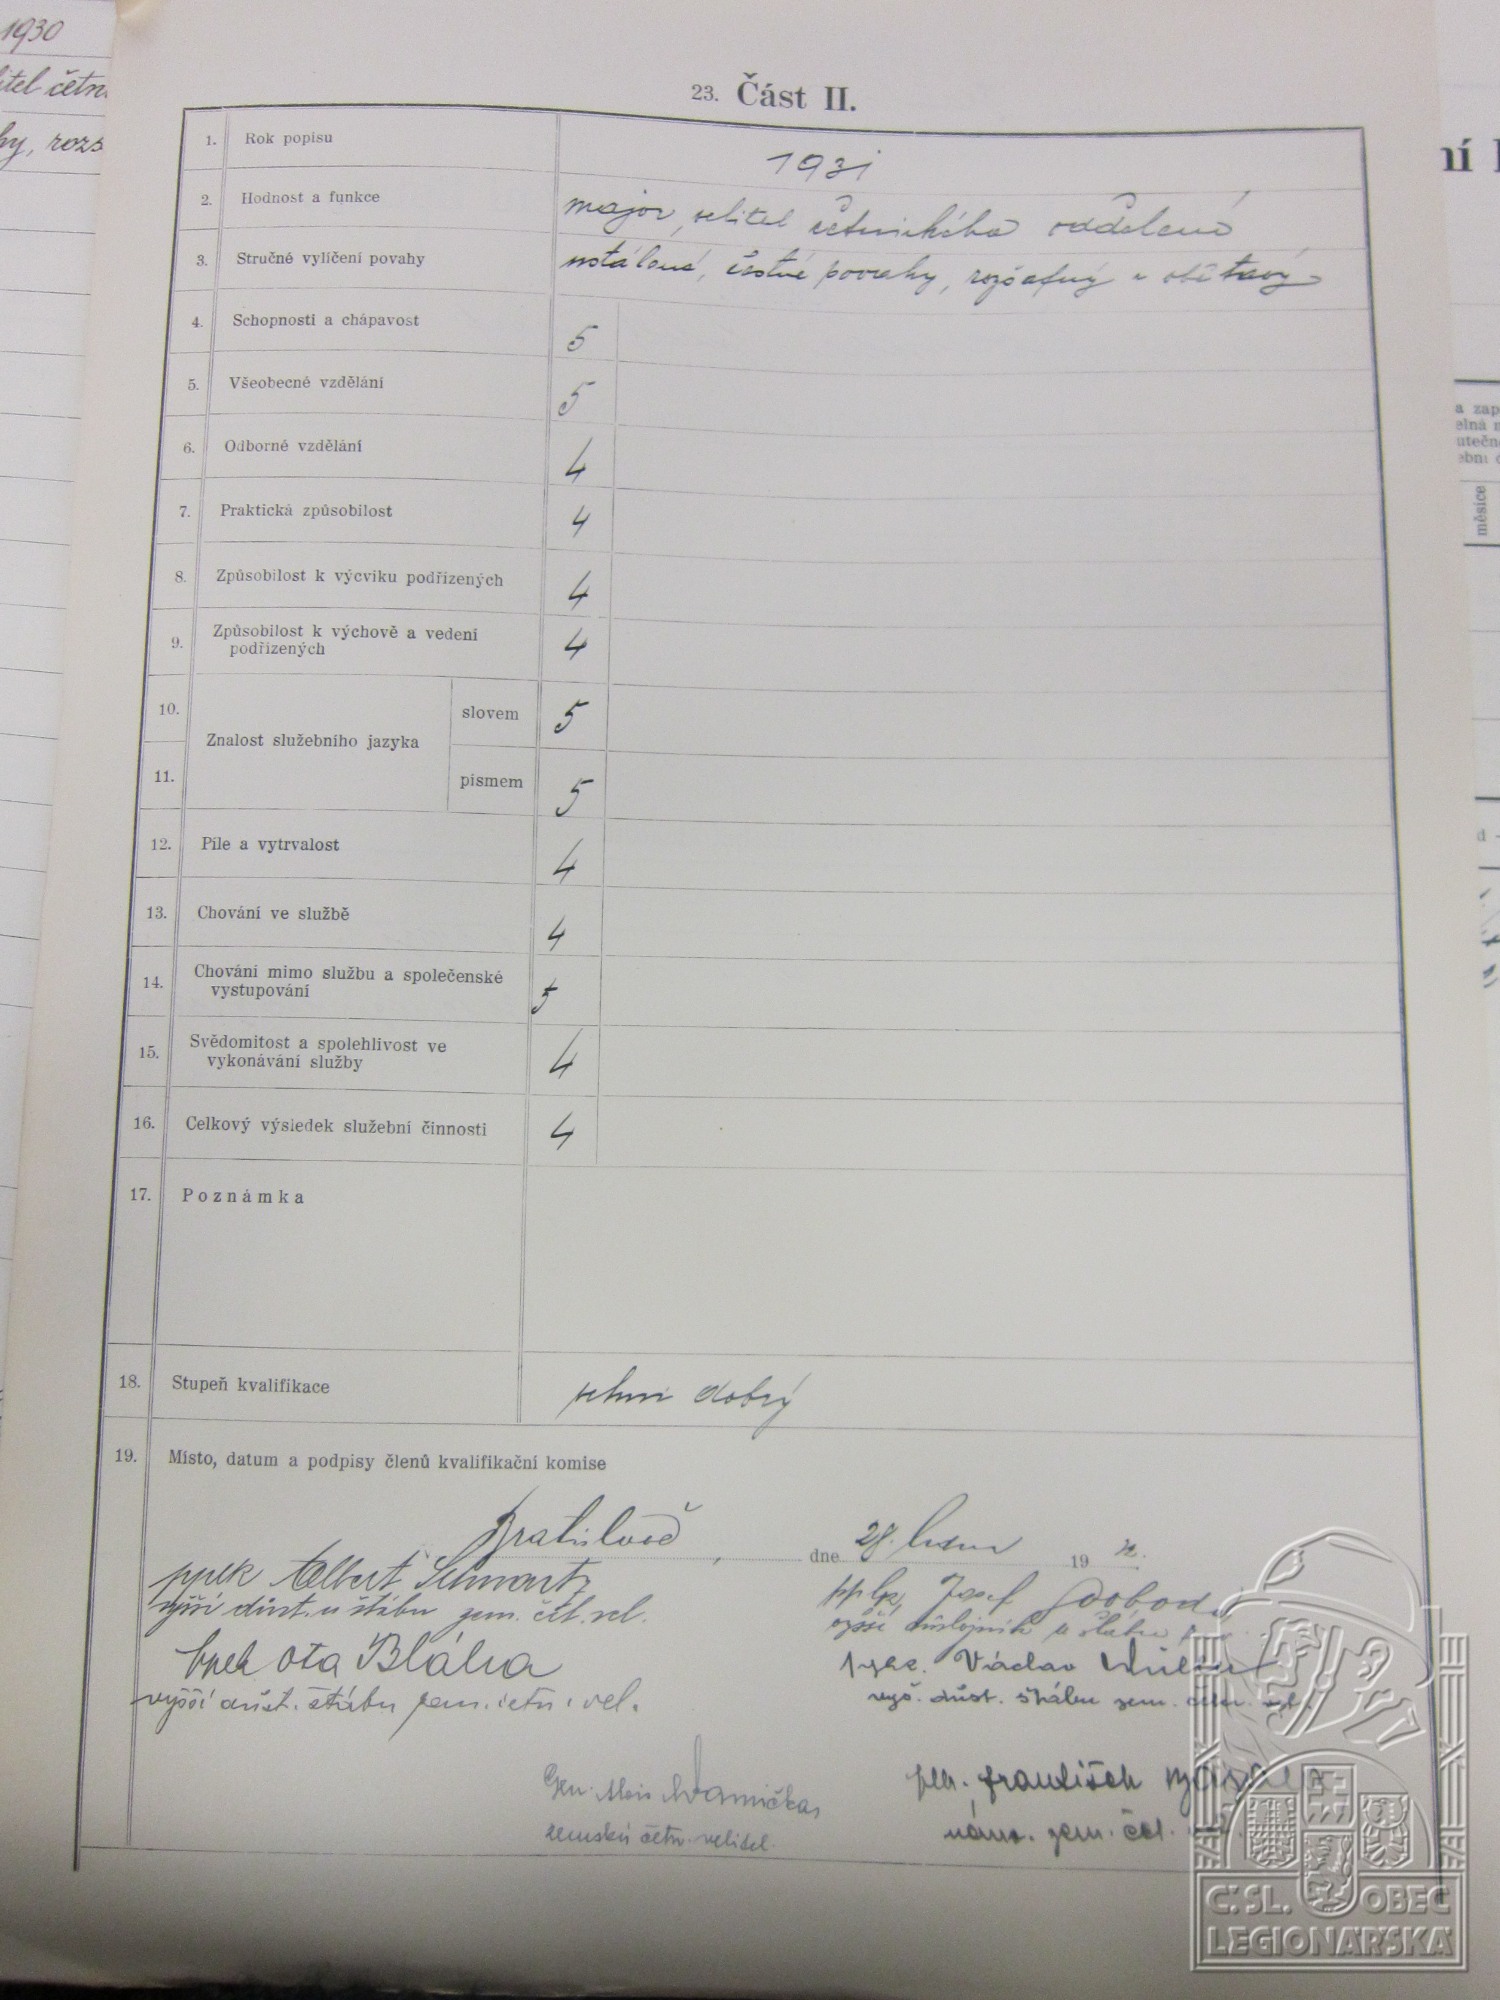 1930
četn.
hy, rozš
23. Část II.
1. Rok popisu 1931
2. Hodnost a funkce major, velitel četnického oddělení
3. Stručné vylíčení povahy ustálené, čestné povahy, rozšafný a obětavý
4. Schopnosti a chápavost 5
5. Všeobecné vzdělání 5
6. Odborné vzdělání 4
7. Praktická způsobilost 4
8. Způsobilost k výcviku podřízených 4
9. Způsobilost k výchově a vedení
podřízených 4
10. Znalost služebního jazyka slovem 5
11. písmem 5
12. Píle a vytrvalost 4
13. Chování ve službě 4
14. Chování mimo službu a společenské
vystupování 5
15. Svědomitost a spolehlivost ve
vykonávání služby 4
16. Celkový výsledek služební činnosti 4
17. Poznámka
18. Stupeň kvalifikace velmi dobrý
19. Místo, datum a podpisy členů kvalifikační komise
Bratislavě, dne 28. ledna 19
pplk Albert Schwartz
vyšší důst. u štábu zem. čet. vel.
pplk. Josef Svoboda
vyšší důstojník u štábu
Ota Bláha
vyšší důst. štábu zem. četn. vel.
Václav
vyš. důst. štábu zem. četn. vel.
Gen. Alois
zemský četn. velitel.
plk. František
nám. zem. čet. vel.
ní
a zap
elná
utečn
ební
měsíce
Č.SL. OBEC
LEGIONÁŘSKÁ